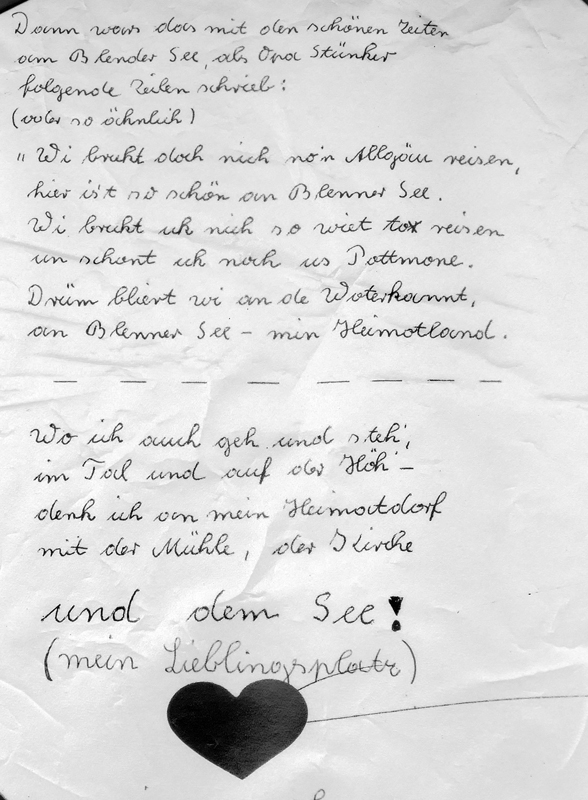 Dann wars das mit den schönen Zeiten
am Blender See, als Opa Stünker
folgende Zeilen schrieb:
(oder so ähnlich)
"Wi brukt doch nich no'n Allgäu reisen,
hier is't so schön an Blenner See.
Wi brukt uk nich so wiet reisen
un schont uk noch us Pottmone.
Drüm bliewt wi an de Woterkannt,
an Blenner See – min Heimotland.
— — — — — — — —
Wo ich auch geh und steh',
im Tal und auf der Höh' –
denk ich an mein Heimatdorf
mit der Mühle, der Kirche
und dem See!
(mein Lieblingsplatz)